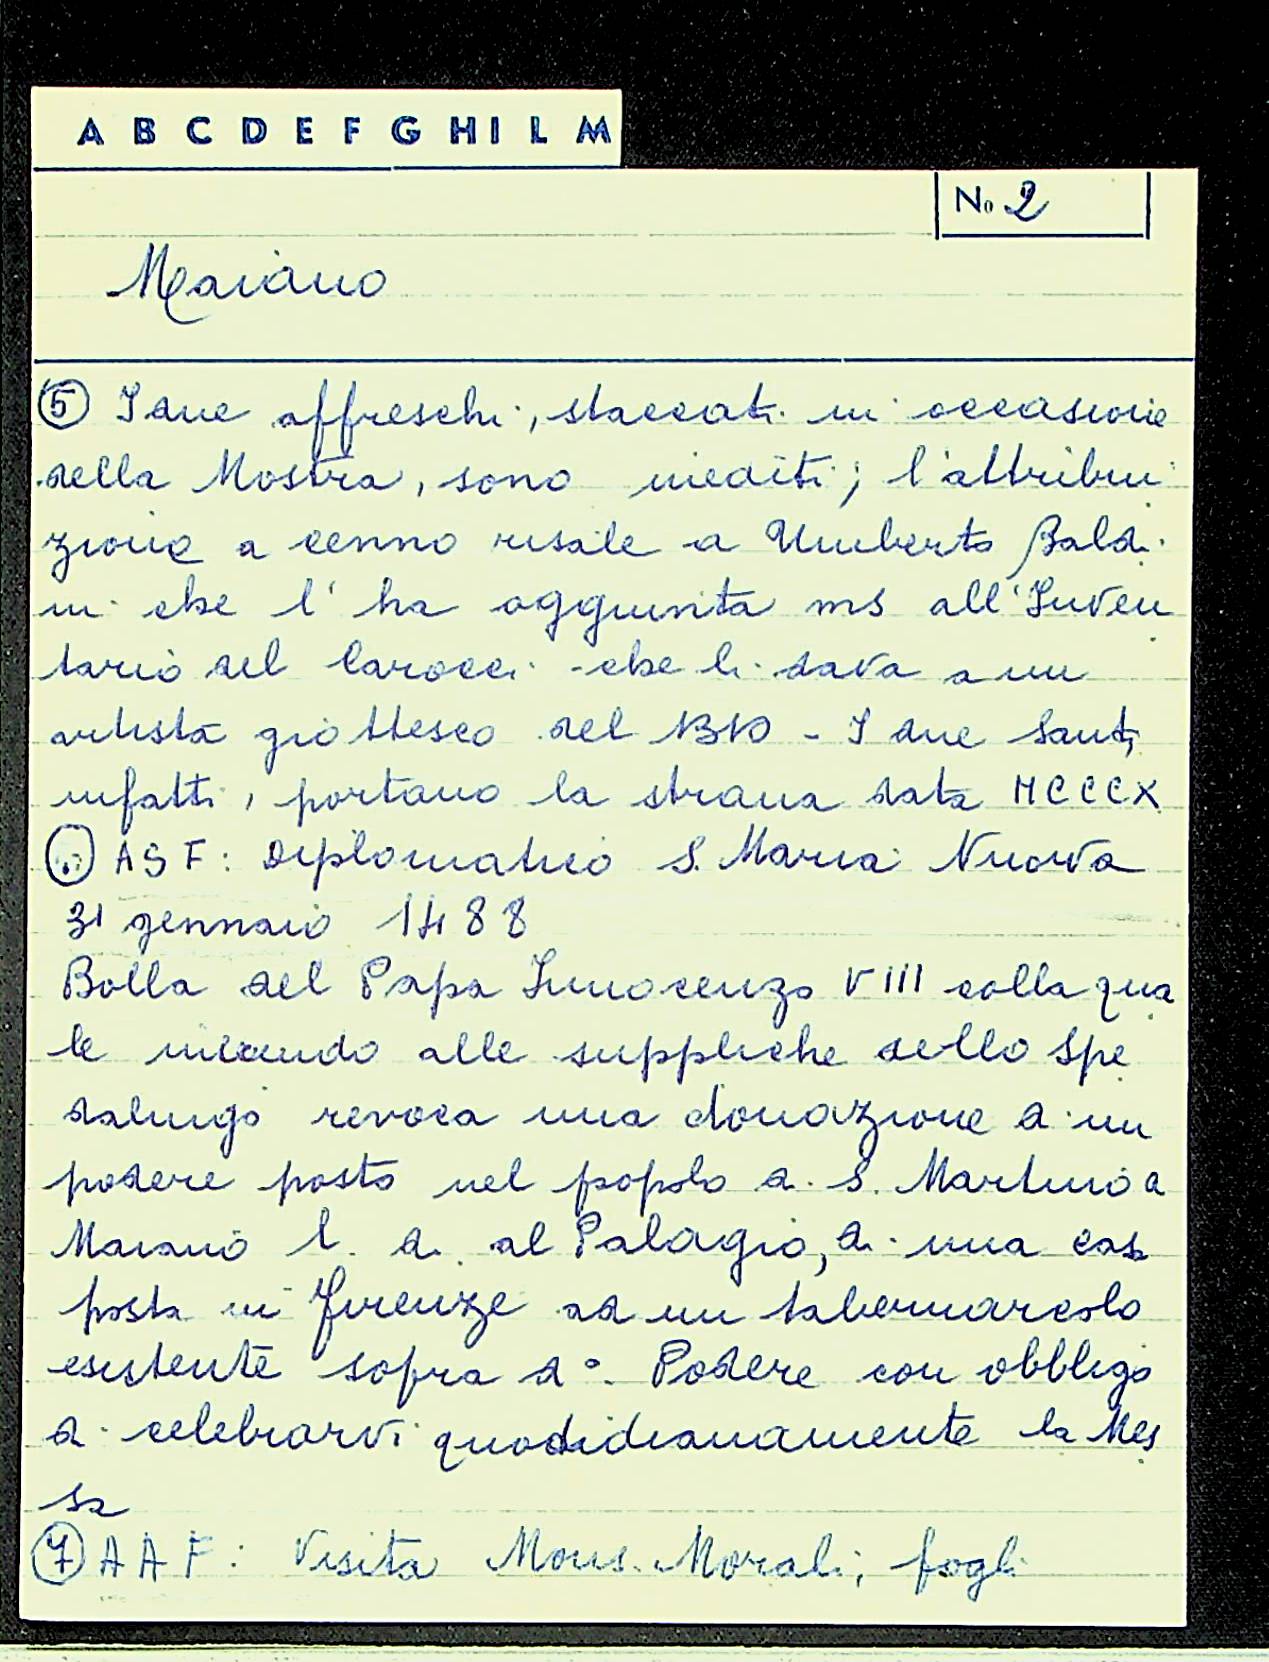 A B C D E F G H I L M
No 2
Maiano
⑤ I due affreschi, staccati in occasione
della Mostra, sono inediti; l'attribui
zione a Cenno risale a Umberto Baldi
ni che l'ha aggiunta ms all'Inven
tario del Carocci - che li dava a un
artista giottesco del 1310 - I due Santi,
infatti, portano la strana data MCCCX
ASF: Diplomatico S. Maria Nuova
31 gennaio 1488
Bolla del Papa Innocenzo VIII colla qua
le alle suppliche dello Spe
dalingo revoca una donazione di un
podere posto nel popolo di S. Martino a
Maiano l. d. al Palagio, di una casa
posta in Firenze ed un tabernarcolo
esistente sopra d°. Podere con obbligo
di celebrarvi quodidianamente la Mes
sa
⑦ AAF: Visita Mons. Morali, fogli